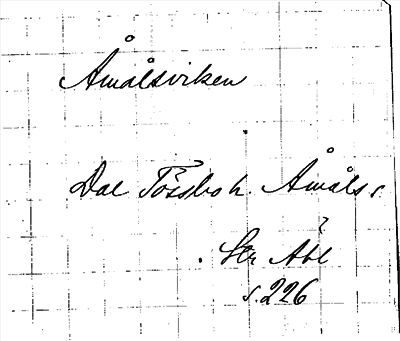 Åmålsviken
Dal Tössbo h. Åmåls s.
?
Str Abl
s. 226